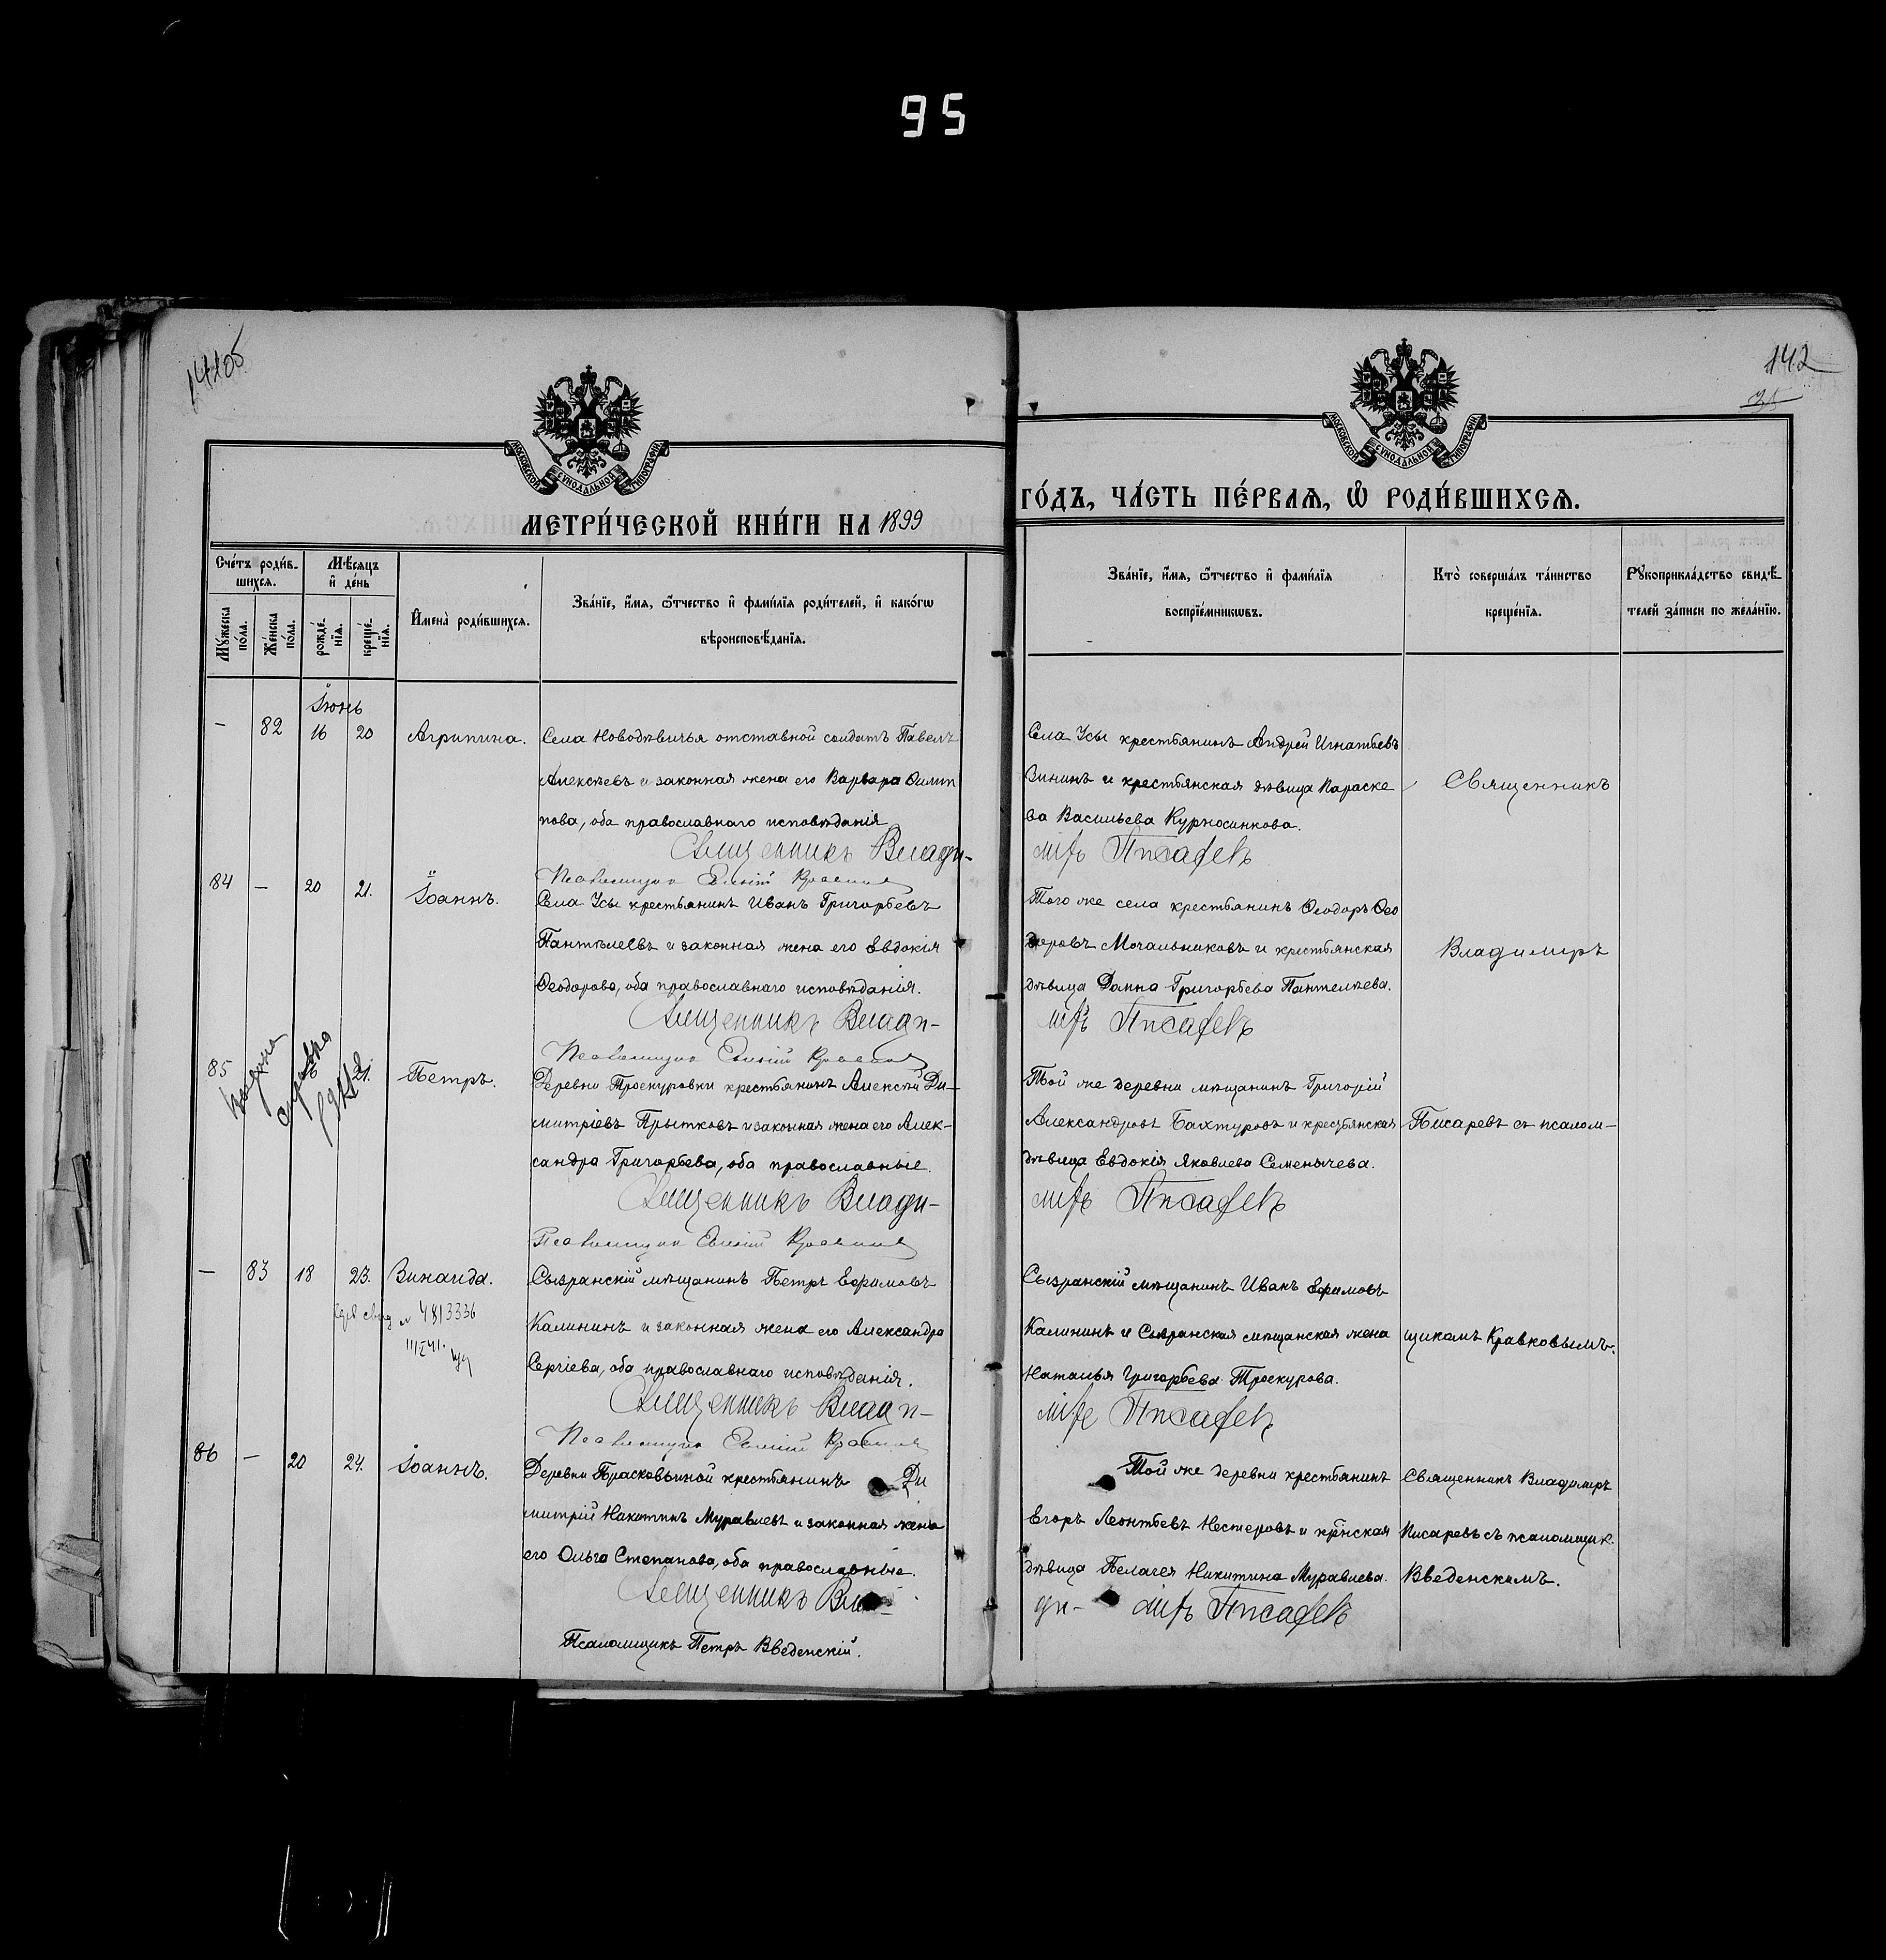 95
142
35
МОСКОВСКОЙ СѴНОДАЛЬНОЙ ТИПОГРАФІИ
МОСКОВСКОЙ СѴНОДАЛЬНОЙ ТИПОГРАФІИ
МЕТРИ́ЧЕСКОЙ КНИ́ГИ НА 1899
ГО́ДЪ, ЧА́СТЬ ПЕ́РВАѦ, Ѡ҆ РОДИ́ВШИХСѦ.
Сче́тъ роди́в-
шихсѧ.
Мꙋ́жеска по́ла.
Же́нска по́ла.
Мѣ́сѧцъ
и҆ де́нь
рожде́-
нїѧ.
креще́-
нїѧ.
И҆мена̀ роди́вшихсѧ.
Зва́нїе, и҆́мѧ, ѻ҆́тчество и҆ фами́лїѧ роди́телей, и҆ како́гѡ
вѣроисповѣ́данїѧ.
Зва́нїе, и҆́мѧ, ѻ҆́тчество и҆ фами́лїѧ
воспрїе́мникѡвъ.
Кто̀ соверша́лъ та́инство
креще́нїѧ.
Рꙋкоприкла́дство свидѣ́-
телей за́писи по жела́нїю.
Іюнь
- 82 16 20 Агрипина.
Села Новодѣвичья отставной солдатъ Павелъ
Алексѣевъ и законная жена его Варвара Филип
пова, оба православнаго исповѣданія
Священникъ Влади-
Села Усы крестьянинъ Андрей Игнатьевъ
Зининъ и крестьянская дѣвица Параске
ва Васильева Курносинкова.
міръ Писаревъ
Священникъ
84 - 20 21. Іоаннъ.
Села Усы крестьянинъ Иванъ Григорьевъ
Пантѣлеевъ и законная жена его Евдокія
Ѳеодорова, оба православнаго исповѣданія.
Священникъ Влади-
Того же села крестьянинъ Ѳеодоръ Ѳео
доровъ Мочальниковъ и крестьянская
дѣвица Данна Григорьева Пантелѣева.
міръ Писаревъ
Владиміръ
85 21. Петръ.
выдана
справка
Деревни Троекуровки крестьянинъ Алексѣй Ди-
митріевъ Прытковъ и законная жена его Алек-
сандра Григорьева, оба православные.
Священникъ Влади-
Той же деревни мѣщанинъ Григорій
Александровъ Бахтуровъ и крестьянская
дѣвица Евдокія Яковлева Семенычева.
міръ Писаревъ
Писаревъ съ псалом-
- 83 18 23. Зинаида.
№ 4813336
Сызранскій мѣщанинъ Петръ Ефимовъ
Калининъ и законная жена его Александра
Сергіева, оба православнаго исповѣданія.
Священникъ Влади-
Сызранскій мѣщанинъ Иванъ Ефимовъ
Калининъ и Сызранская мѣщанская жена
Наталья Григорьева Троекурова.
міръ Писаревъ
щикомъ Кравковымъ.
86 - 20 24. Іоаннъ.
Деревни Прасковьиной крестьянинъ Ди
митрій Никитинъ Муравлевъ и законная жена
его Ольга Степанова, оба православные.
Священникъ Вла-
Псаломщикъ Петръ Введенскій.
Той же деревни крестьянинъ
Егоръ Леонтьевъ Нестеровъ и кр̃нская
дѣвица Пелагея Никитина Муравлева.
ди- міръ Писаревъ
Священникъ Владиміръ
Писаревъ съ псаломщик.
Введенскимъ.